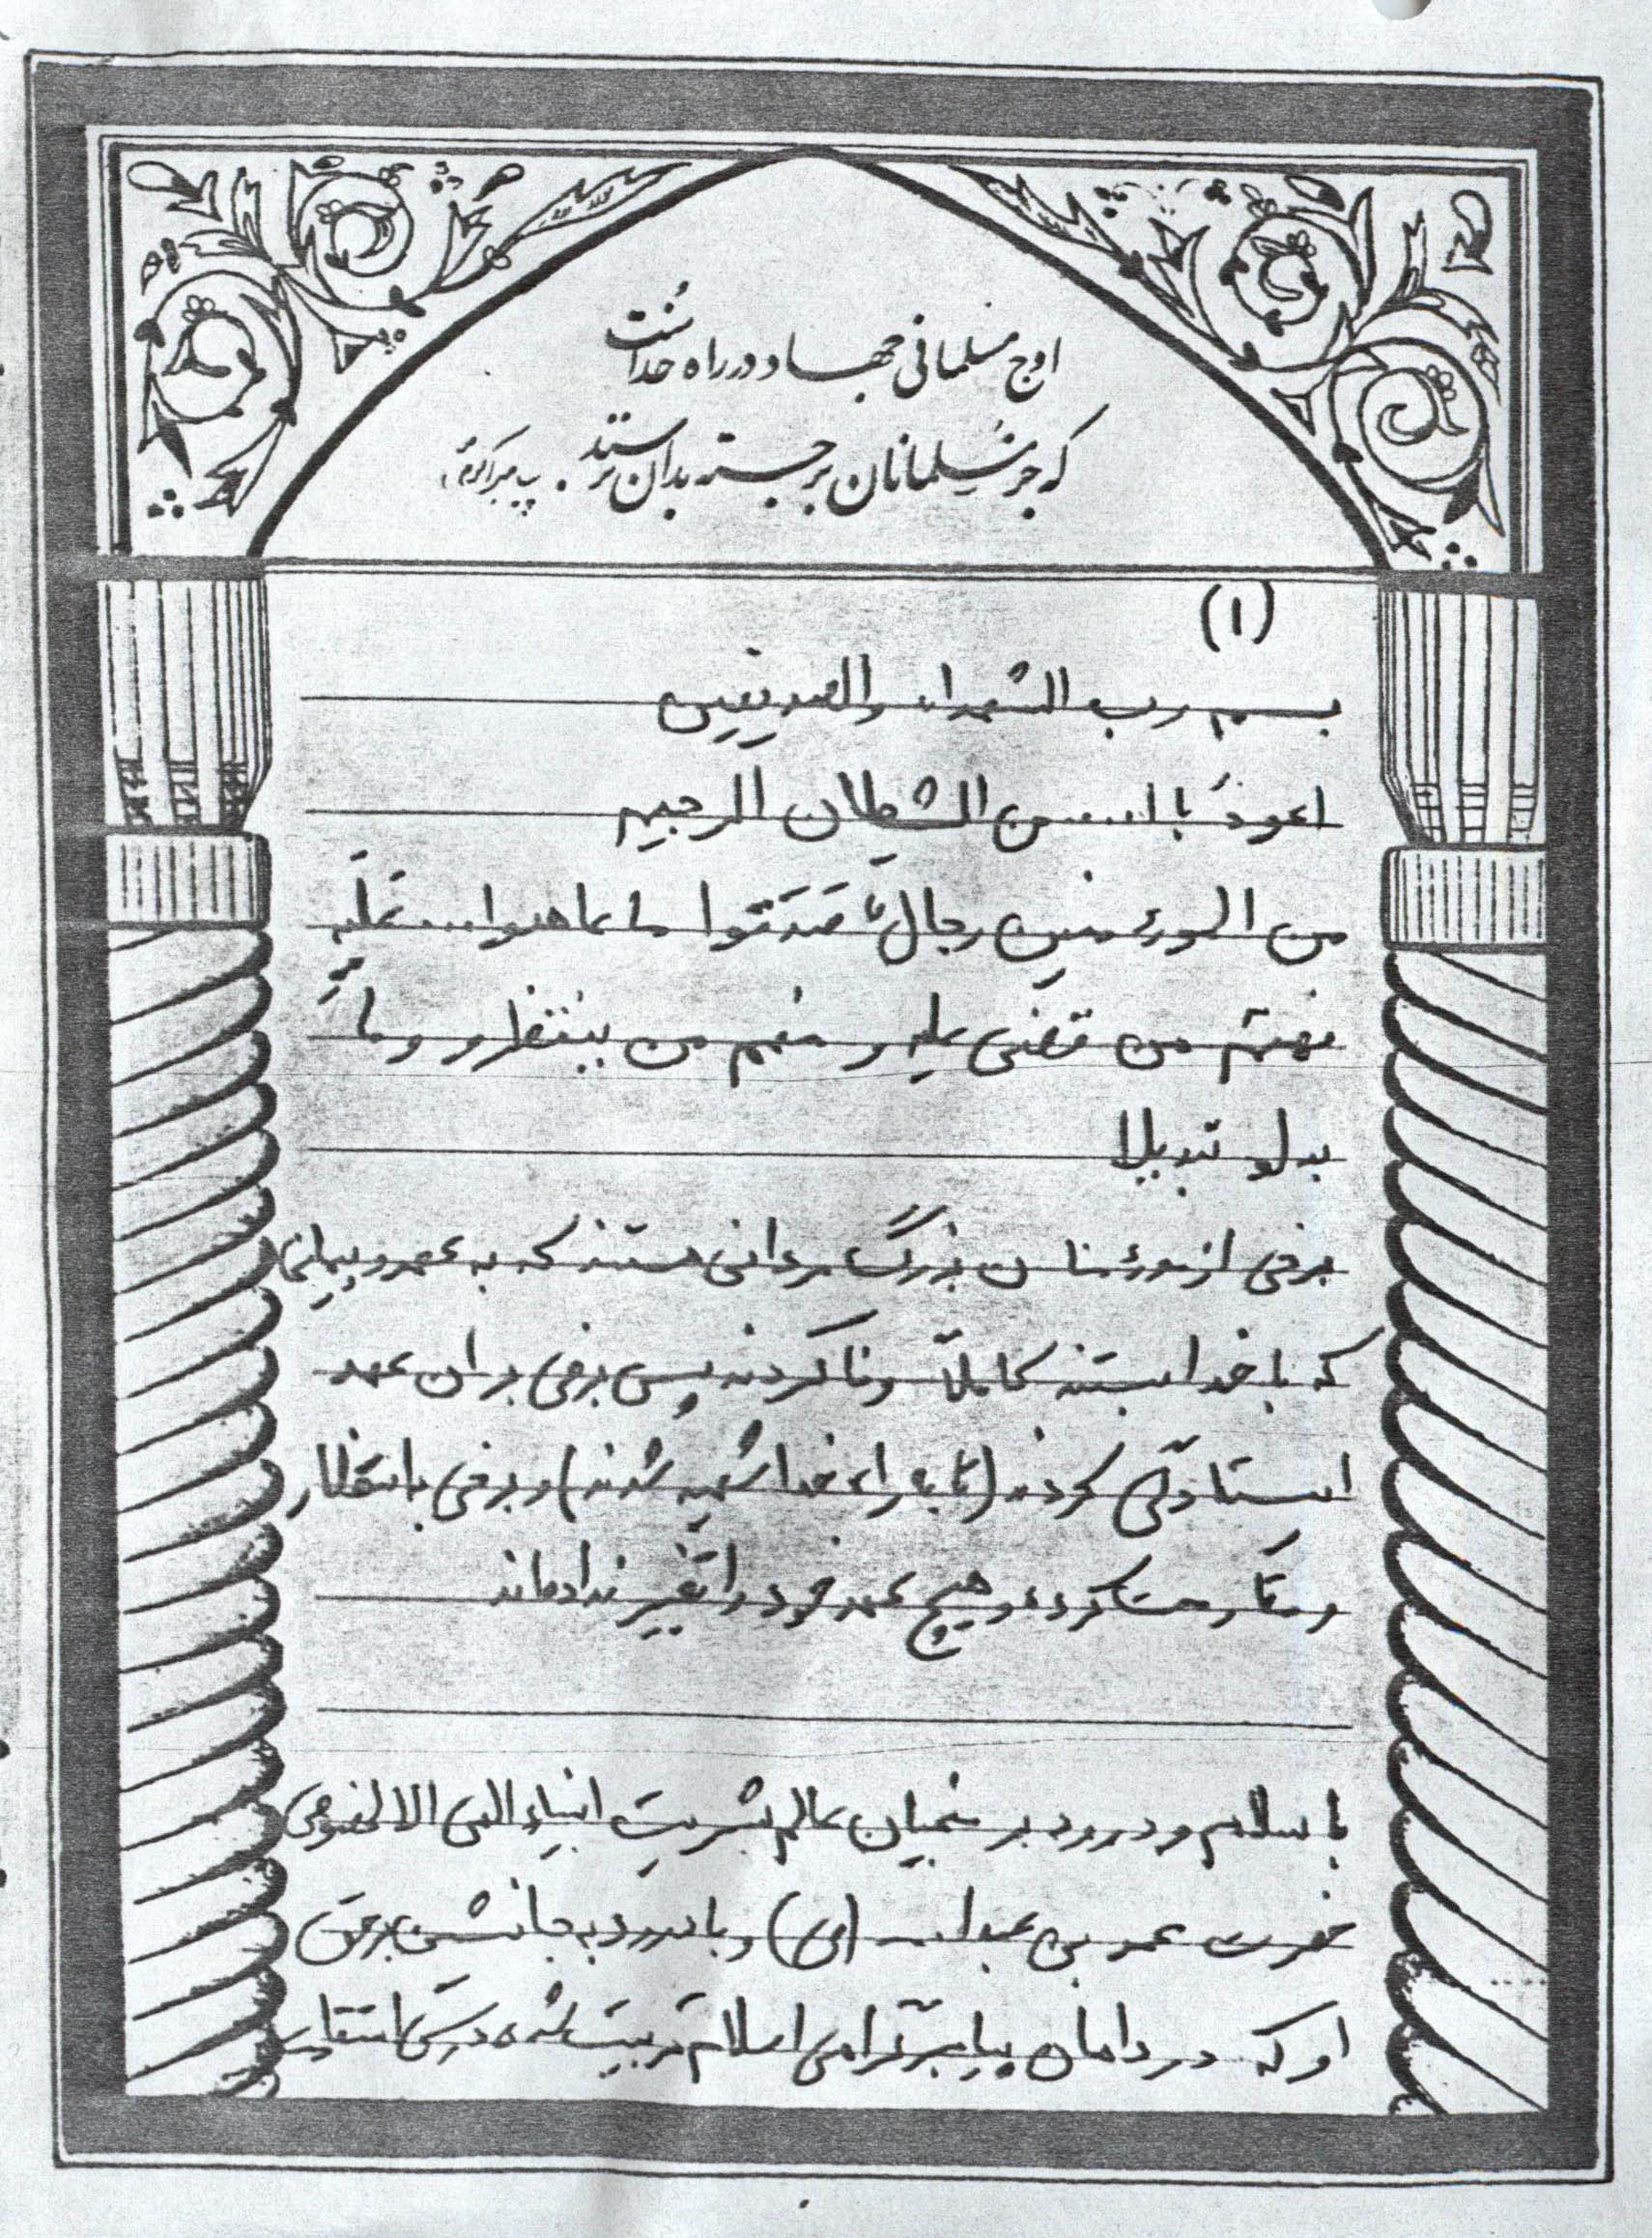 اوج مسلمانی جهاد در راه خداست
که جز مسلمانان برجسته بدان نرسند. پیامبر اکرم
(۱)
بسم رب الشهداء والصدیقین
اعوذُ باالله من الشیطان الرجیم
من الموءمنین رجالٌ صَدَقَوا ما عاهدوا الله عَلَیه
فمنهَم من قضی علیه و منهم من ینتظرو وما
بدلو تبدیلا
برخی از موءمنان بزرگ مردانی هستند که به عهد و پیمانی
که با خدا بستند کاملاً وفا کردند پس برخی بر ان عهد
ایستادگی کردند (تا به راه خدا شهید شدند) و برخی بانتظار
مقاومت کرده و هیچ عهد خود را تغییر نداده‌اند
با سلام و درود بر منجیان عالم بشریت انبیاء الهی الا لخصوص
حضرت محمد بن عبدالله (ص) و با درود به جانشین برحق
او که در دامان پیامبر گرامی اسلام تربیت شده درس استقامت